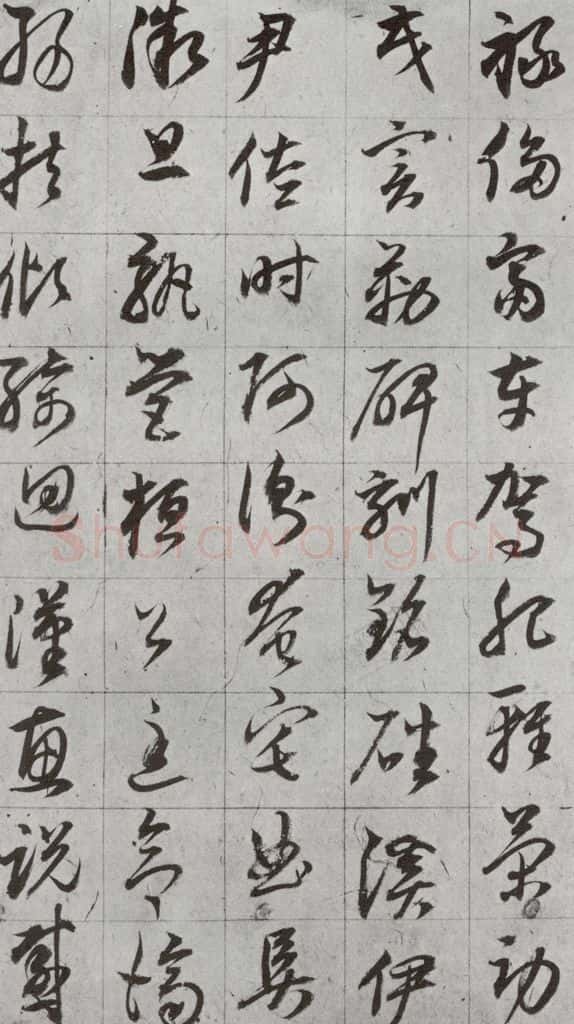 禄侈富車駕肥輕策功
茂實勒碑刻銘磻溪伊
尹佐時阿衡奄宅曲阜
微旦孰營桓公匡合濟
弱扶傾綺迴漢惠說感
Shufawang.CN